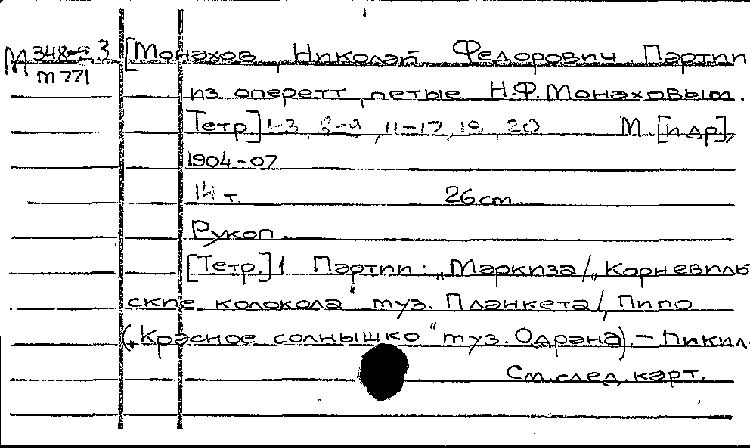 М 348-5.3 [Монахов, Николай Федорович Партии
т 771
из оперетт, петые Н.Ф.Монаховым.
Тетр.] 1-3, 8-9, 11-17, 19, 20 М. [и др],
1904-07
14 т. 26 cm
Рукоп.
[Тетр.] 1 Партии: „Маркиза/„Корневиль
ские колокола" муз. Планкета/, Пипо
(„Красное солнышко" муз. Одрана) – Пикил-
См. след. карт.